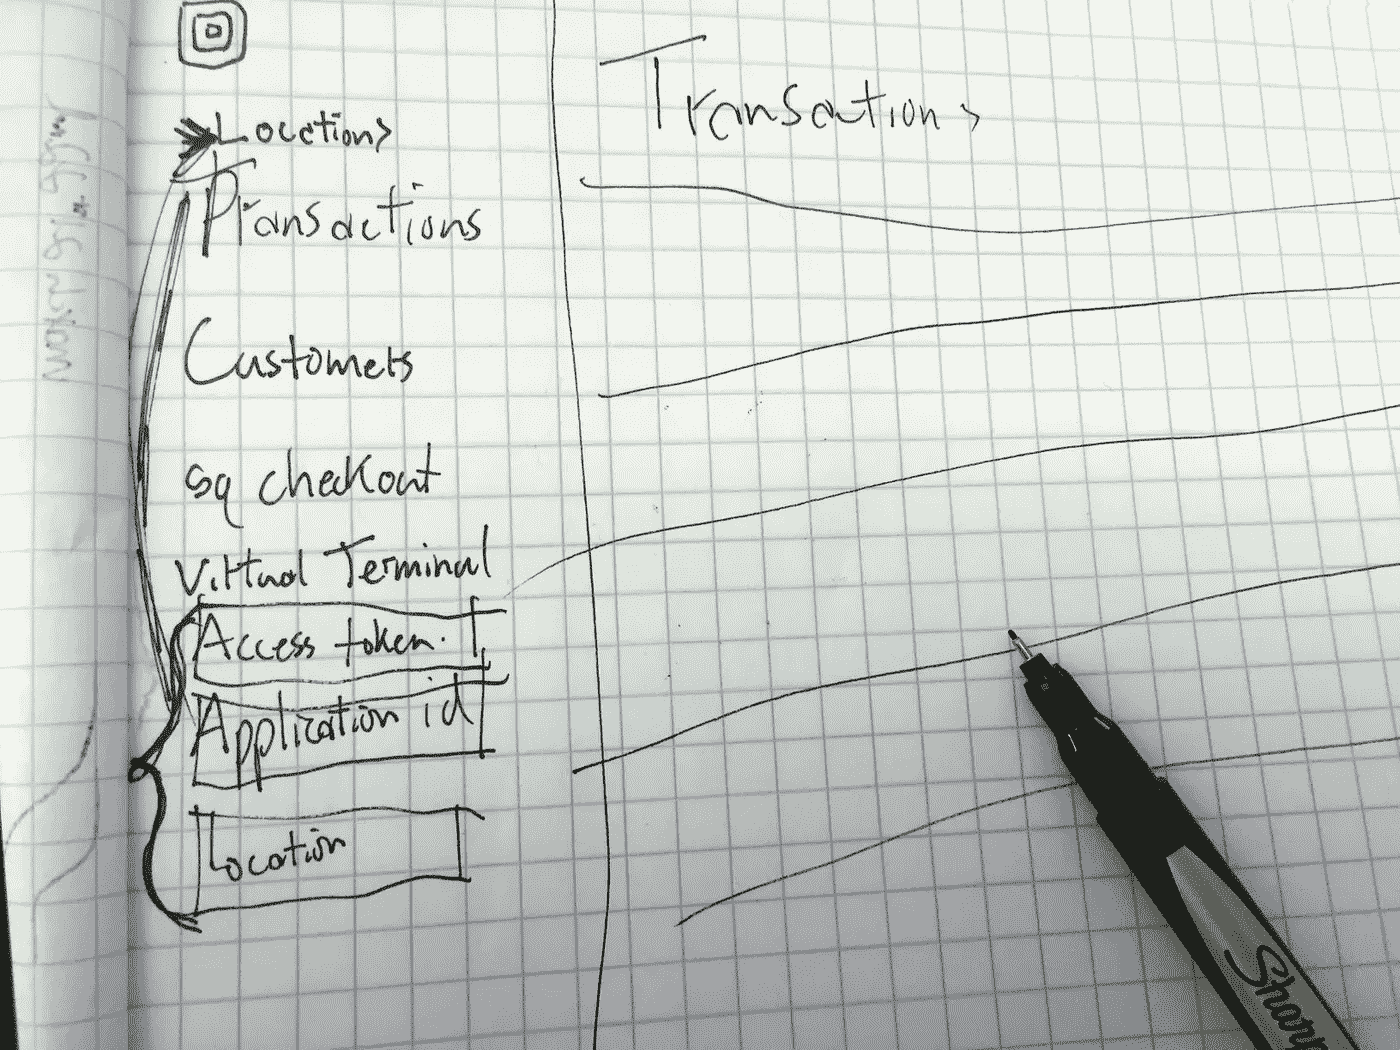 Locations
Transactions
Customers
sq checkout
Virtual Terminal
Access token.
Application id
Location
Transations
Sharp